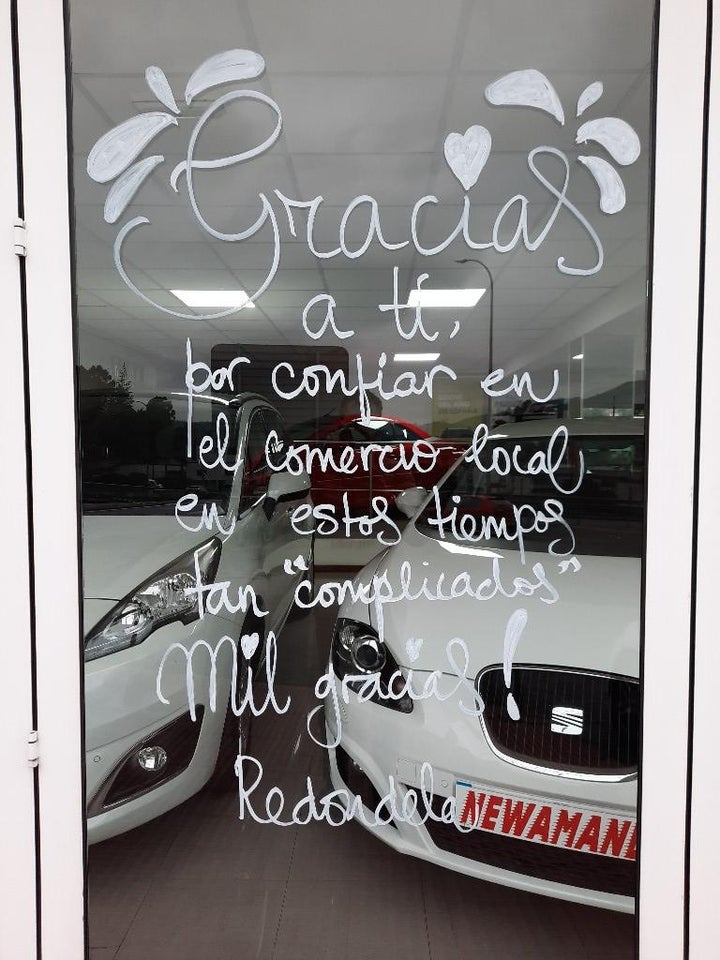 Gracias
a tí,
por confiar en
el comercio local
en estos tiempos
tan "complicados"
Mil gracias!
Redondela
NEWAMAN